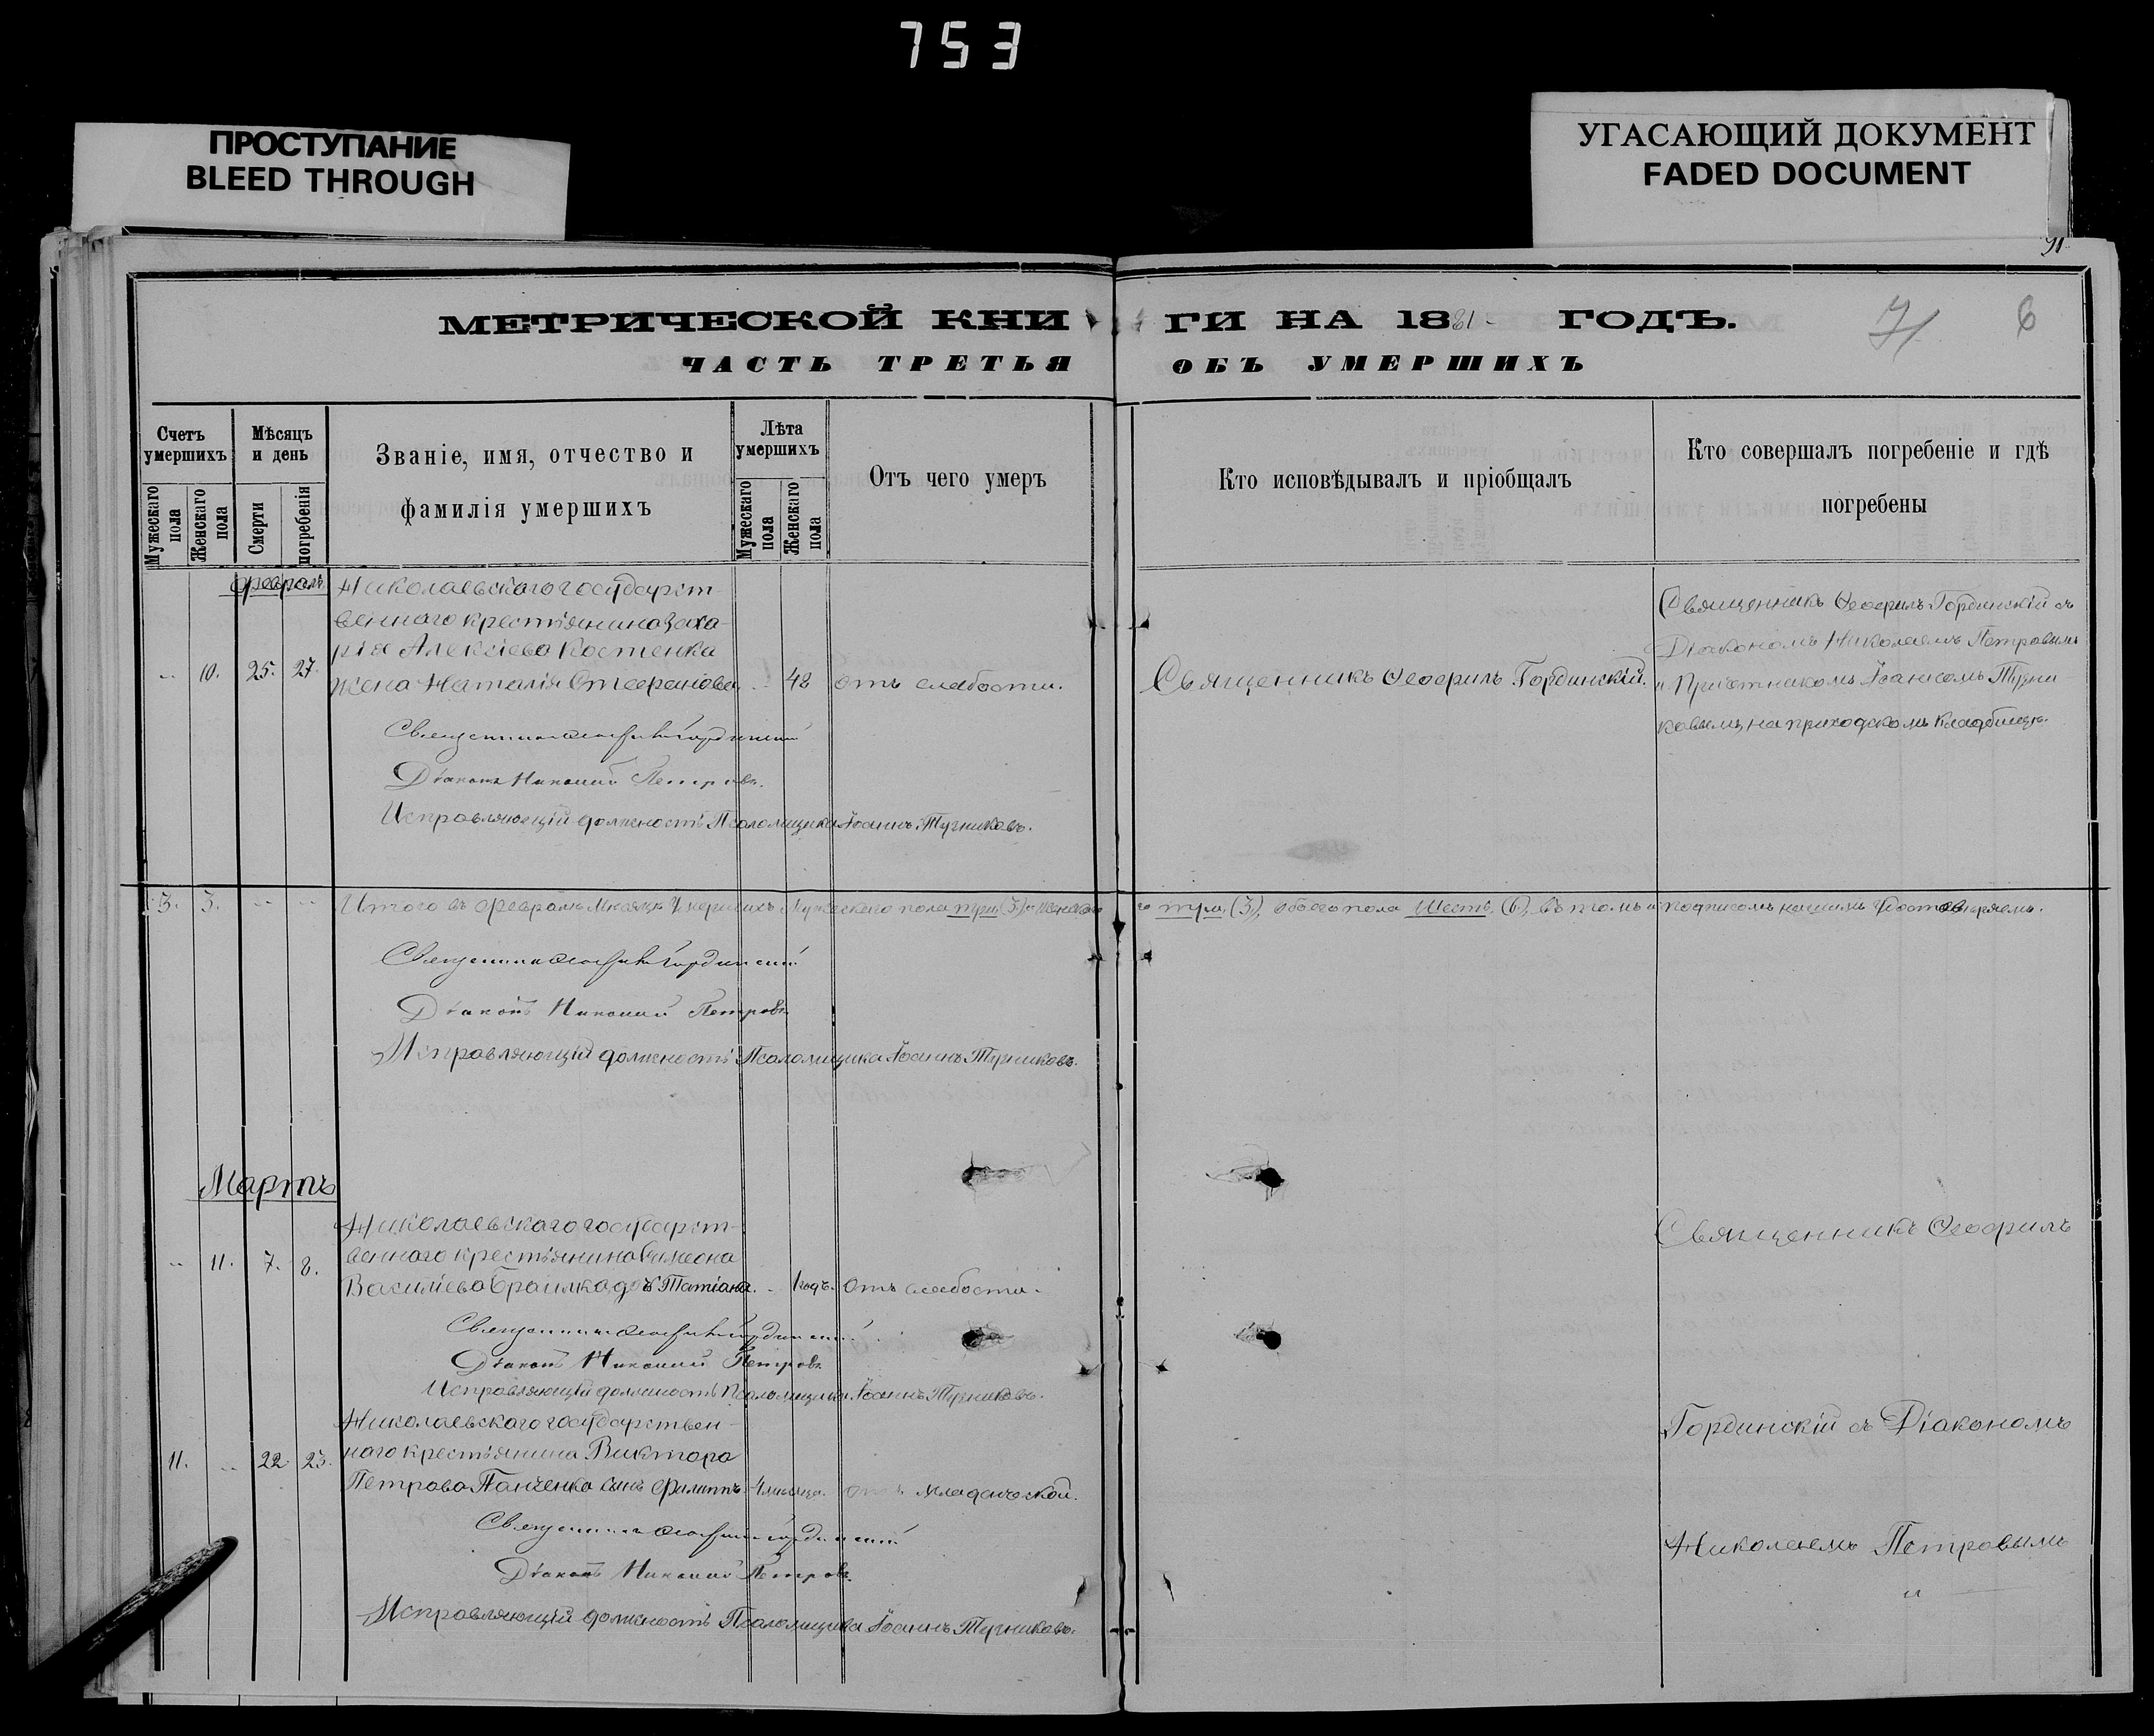 753
ПРОСТУПАНИЕ
BLEED THROUGH
УГАСАЮЩИЙ ДОКУМЕНТ
FADED DOCUMENT
91
МЕТРИЧЕСКОЙ КНИ ГИ НА 1881 ГОДЪ.
71 6
ЧАСТЬ ТРЕТЬЯ ОБЪ УМЕРШИХЪ
Счетъ умершихъ
Мужескаго пола
Женскаго пола
Мѣсяцъ и день
Смерти
погребенія
Званіе, имя, отчество и
фамилія умершихъ
Лѣта умершихъ
Мужескаго пола
Женскаго пола
Отъ чего умеръ
Кто исповѣдывалъ и пріобщалъ
Кто совершалъ погребеніе и гдѣ
погребены
Февраль
Николаевскаго государст-
веннаго крестьянина Заха-
рія Алексіева Костенка
10. 25. 27. жена Наталія Стефанова 48 отъ слабости. Священникъ Ѳеофилъ Гординскій.
Священникъ Ѳеофилъ Гординскій съ
Діакономъ Николаемъ Петровымъ
и Причетникомъ Іоанномъ Тучни-
ковымъ, на приходскомъ кладбищѣ.
Священникъ Ѳеофилъ Гординскій
Діаконъ Николай Петровъ.
Исправляющій должность Псаломщика Іоаннъ Тучниковъ.
3. 3. Итого въ Февралѣ мѣсяцѣ умершихъ Мужескаго пола три (3) и женскаго три, (3), обоего пола Шесть, (6), въ томъ и подписомъ нашимъ удостовѣряемъ.
Священникъ Ѳеофилъ Гординскій
Діаконъ Николай Петровъ
Исправляющій должность Псаломщика Іоаннъ Тучниковъ.
Мартъ
Николаевскаго государст-
11. 7. 8. веннаго крестьянина Симеона
Василіева дочь Татіана. 1 годъ. отъ слабости.
Священникъ Ѳеофилъ
Священникъ Ѳеофилъ Гординскій
Діаконъ Николай Петровъ
Исправляющій должность Псаломщика Іоаннъ Тучниковъ.
Николаевскаго государствен-
11. 22. 23. наго крестьянина Виктора
Петрова Панченка сынъ Филиппъ 4 мѣсяца. отъ младенческой.
Гординскій съ Діакономъ
Священникъ Ѳеофилъ Гординскій
Діаконъ Николай Петровъ.
Николаемъ Петровымъ
и
Исправляющій должность Псаломщика Іоаннъ Тучниковъ.